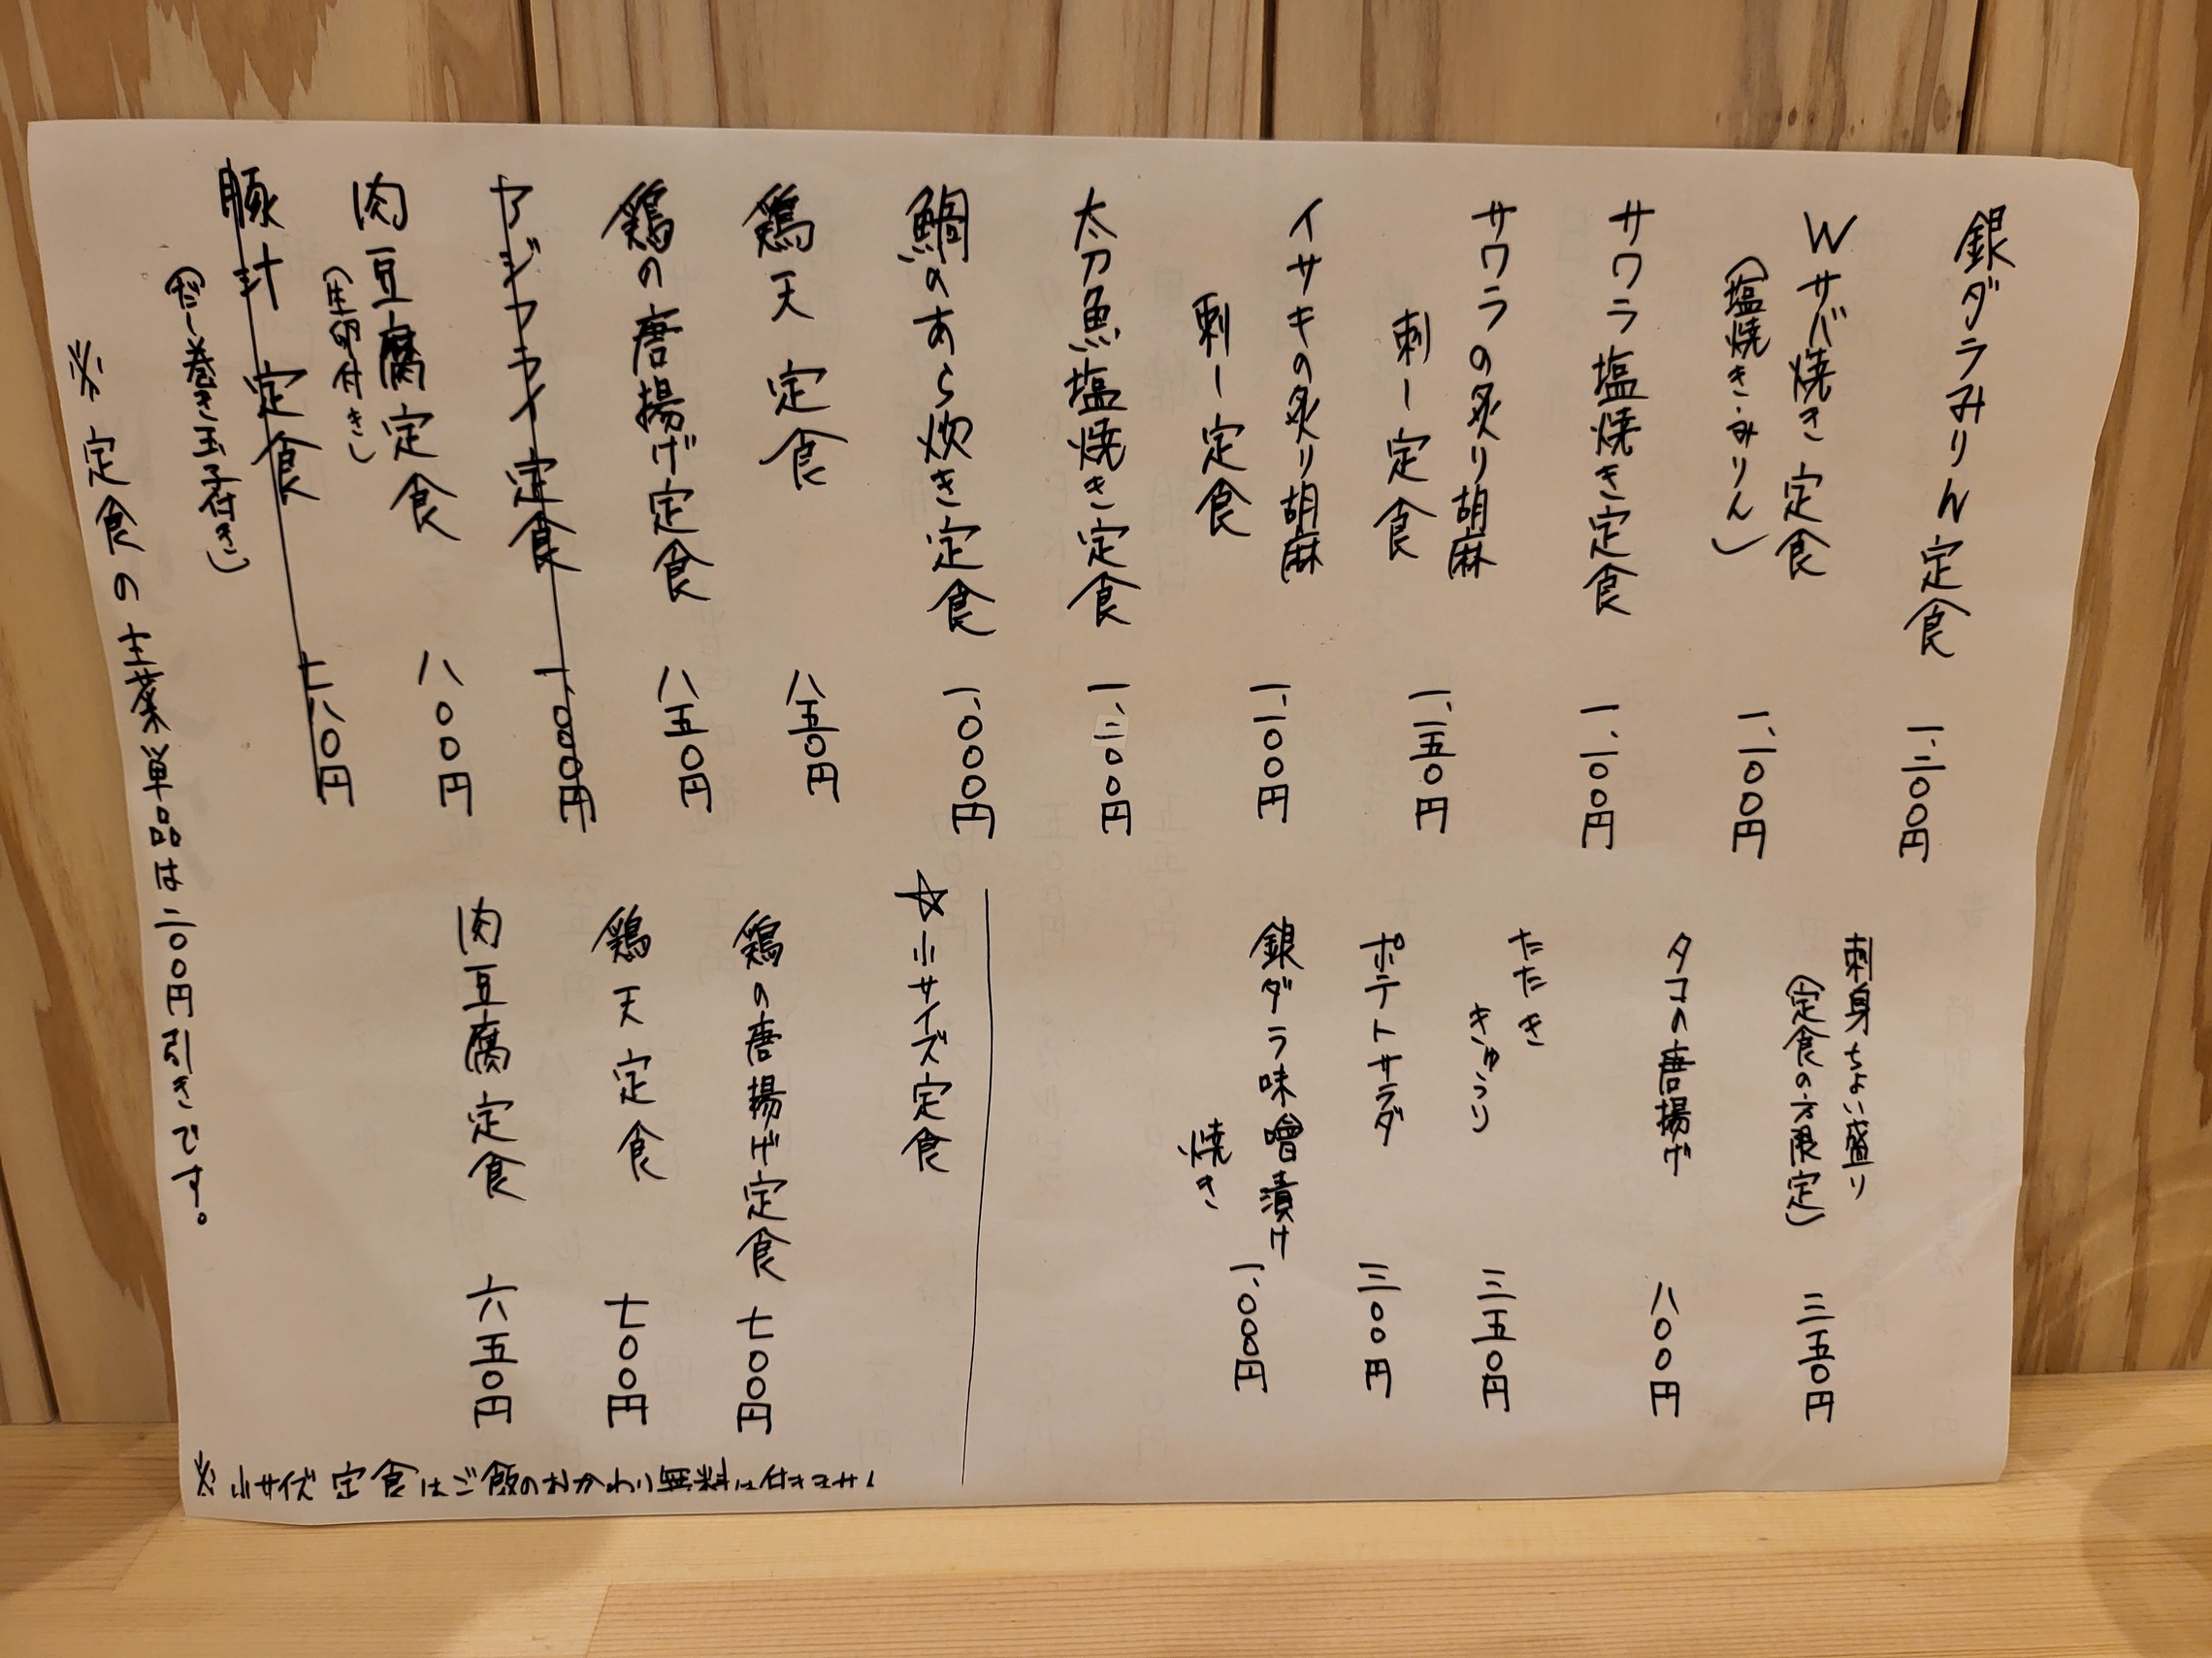 銀ダラみりん定食 一、二〇〇円
Wサバ焼き定食 一、一〇〇円
(塩焼き・みりん)
サワラ塩焼き定食 一、一〇〇円
サワラの炙り胡麻
刺し定食 一、一五〇円
イサキの炙り胡麻
刺し定食 一、一〇〇円
太刀魚塩焼き定食 一、二〇〇円
鯛のあら炊き定食 一、〇〇〇円
鶏天定食 八五〇円
鶏の唐揚げ定食 八五〇円
アジフライ定食 一、〇〇〇円
肉豆腐定食 八〇〇円
(生卵付き)
豚汁定食 七八〇円
(だし巻き玉子付き)
※定食の主菜単品は二〇〇円引きです。
刺身ちょい盛り
(定食の方限定) 三五〇円
タコの唐揚げ 八〇〇円
たたき
きゅうり 三五〇円
ポテトサラダ 三〇〇円
銀ダラ味噌漬け
焼き 一、〇〇〇円
☆小サイズ定食
鶏の唐揚げ定食 七〇〇円
鶏天定食 七〇〇円
肉豆腐定食 六五〇円
※小サイズ定食はご飯のおかわり無料は付きません